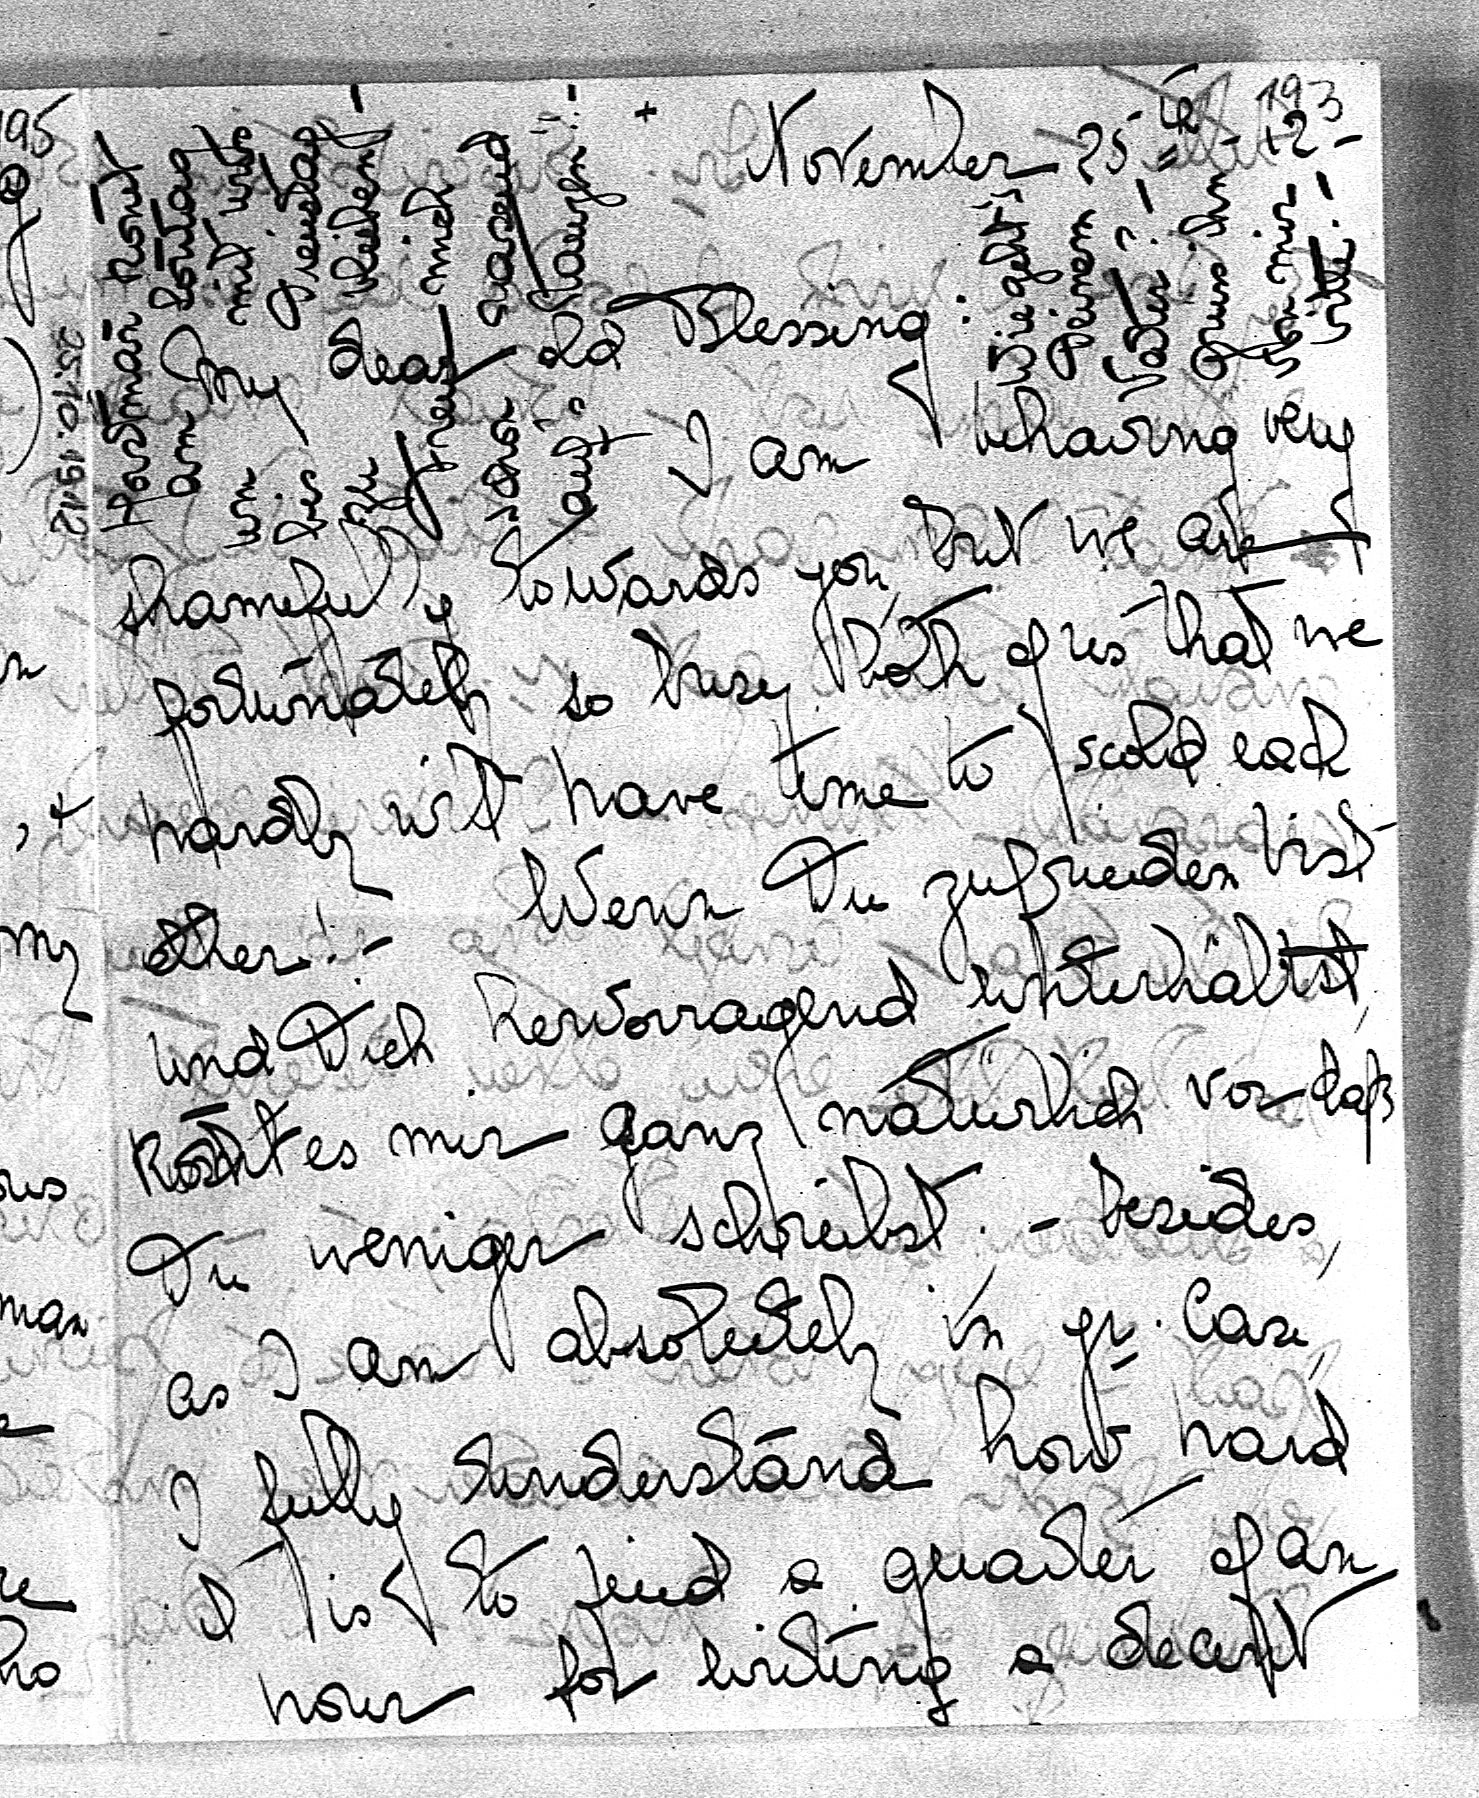 193
November 25th - 12 -
My dear old Blessing:
I am behaving very
shamefully towards you, but we are
fortunately so busy both of us that we
hardly will have time to scold each
other! - Wenn Du zufrieden bist
und Dich hervorragend unterhältst,
kommt es mir ganz natürlich vor daß
Du weniger schreibst. - besides,
as I am absolutely in yr. Case,
I fully understand how hard
it is to find a quarter of an
hour for writing a decent
Hordman kommt
am Sonntag
mit uns
zu bleiben!
freue mich
rasend
darauf!
Wie geht's
Deinem
Vater?
Grüss ihn
von mir
bitte!
195
25.10.1912